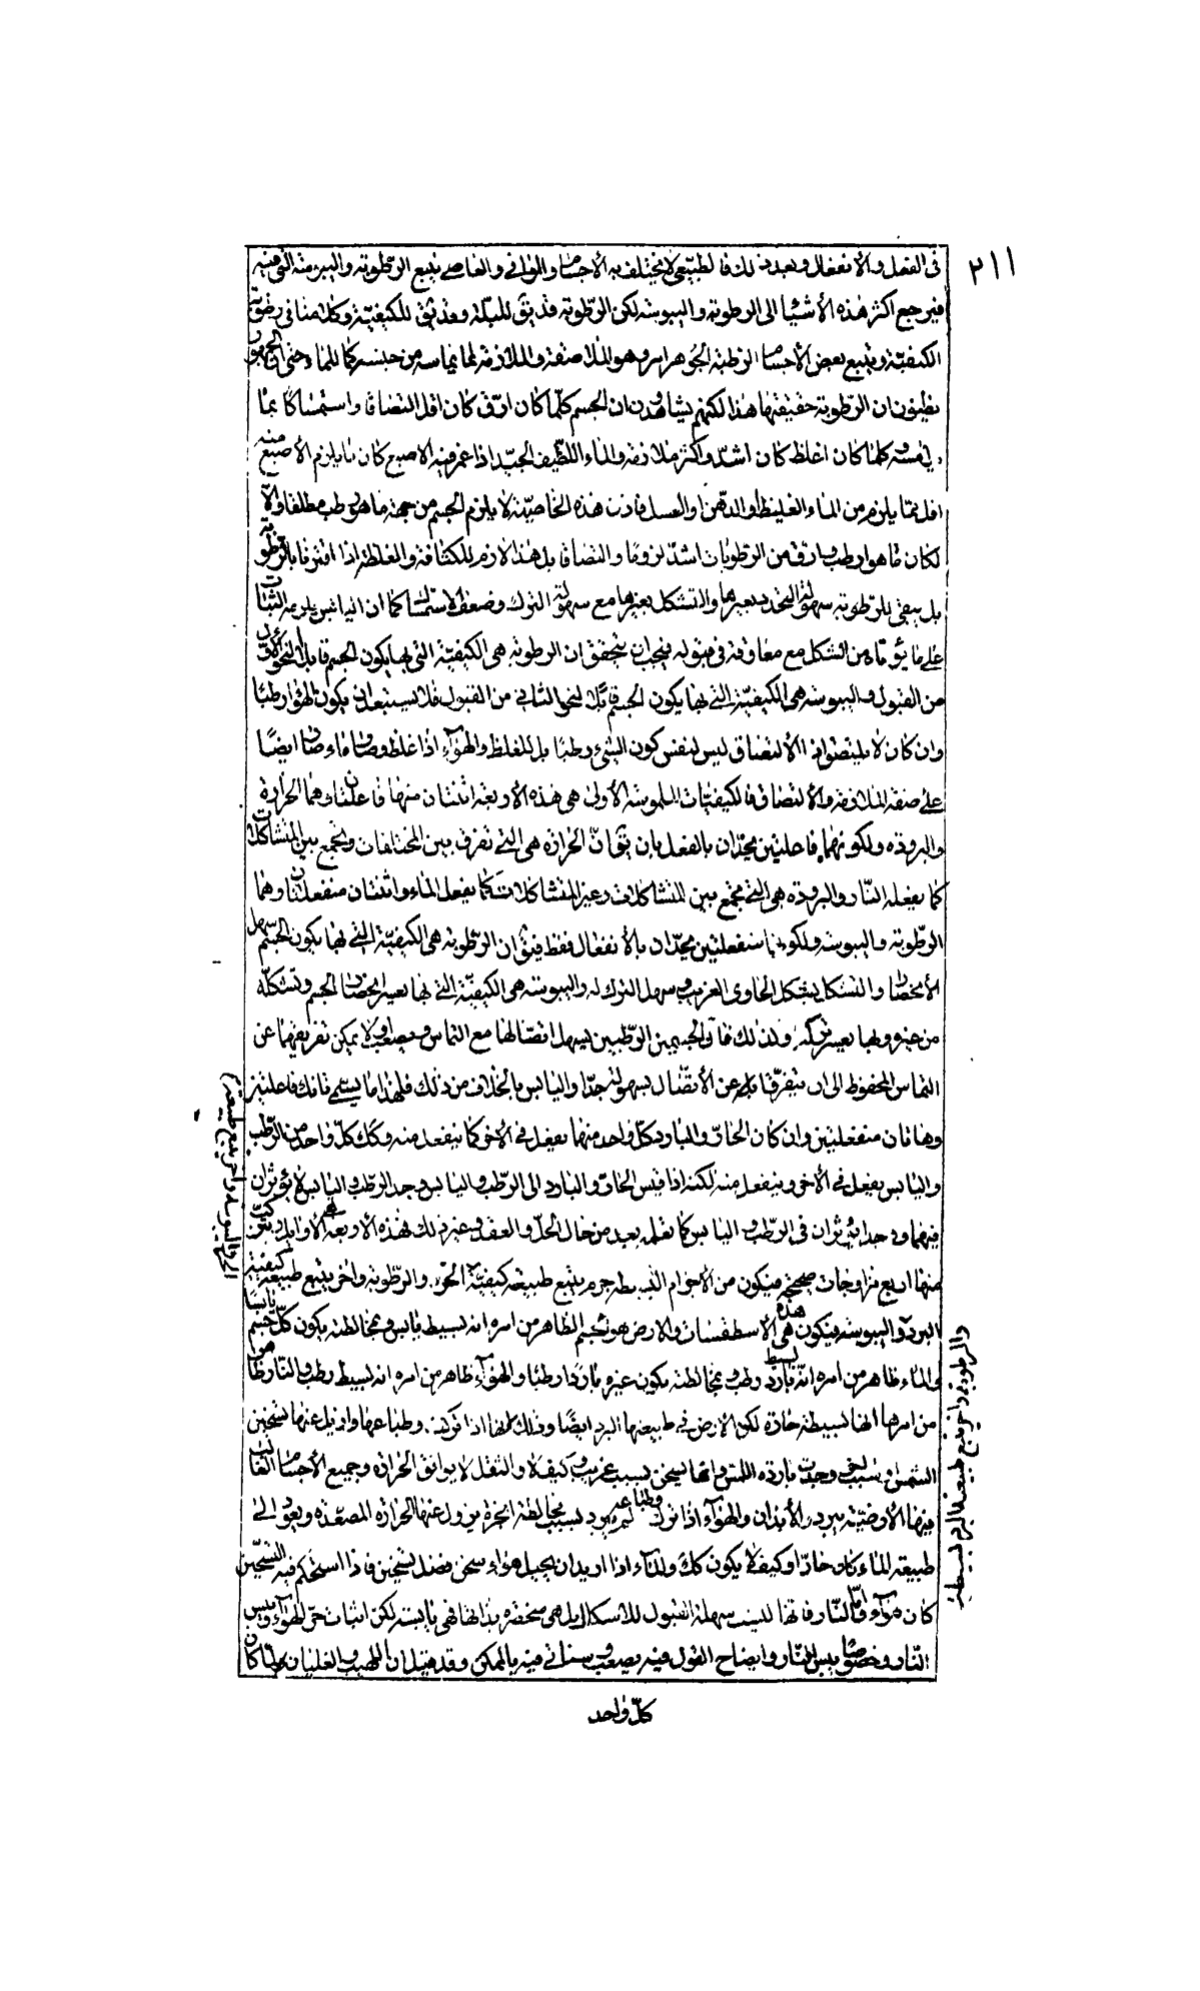 ٢١١
فى الفعل والانفعال وبعد ذلك فالطبيعى لا يختلف به الأجسام والوافى والعاصى يتبع الرطوبة واليبس منه التى منه
فيرجع أكثر هذه الأشيا الى الرطوبة واليبوسة لكن الرطوبة قد يق للبلة وقد يق للكيفية وكلامنا فى رطوبة
الكيفية ويتبع بعض الأجسام الرطبة الجوهر امر وهو الملاصقة والملازمة لما يماسه من جنسه كما للماء حتى الجمهور
يظنون ان الرطوبة حقيقتها هذا لكنهم يشاهدون ان الجسم كلما كان ارق كان اقل التصاقا واستمساكا بما
يلامسه وكلما كان اغلظ كان اشد واكثر ملازمة والماء اللطيف الجيد اذا غمر فيه الاصبع كان ما يلزم الأصبع منه
اقل مما يلزم من الماء الغليظ او الدهن او العسل فاذن هذه الخاصية لا يلزم الجسم من جهة ما هو رطب مطلقا والا
لكان ما هو ارطب وارق من الرطوبات اشد لزوما والتصاقا بل هذا لازم للكثافة والغلظ اذا اقترنا بالرطوبة
بل يبقى للرطوبة سهولة التحدد بغيرها والتشكل بغيرها مع سهولة الترك وضعف الاستمساك كما ان اليابس يلزمه الثبات
على ما يؤتاه من الشكل مع معاوقة فى قبوله فيجب ان يتحقق ان الرطوبة هى الكيفية التى بها يكون الجسم قابلا للنحو الأول
من القبول واليبوسة هى الكيفية التى بها يكون الجسم قابلا للنحو الثانى من القبول فلا يستبعد ان يكون الهواء رطبا
وان كان لا يلتصق اذ الالتصاق ليس لنفس كون الشىء رطبا بل للغلظ والهواء اذا غلظ وصار ماء صار ايضا
على صفة الملازمة والالتصاق فالكيفيات الملموسة الأولى هى هذه الأربعة اثنتان منها فاعلتان وهما الحرارة
والبرودة ولكونهما فاعلتين يحدان بالفعل بان يق ان الحرارة هى التى تفرق بين المختلفات وتجمع بين المتشاكلات
كما يفعله النار والبرودة هى التى تجمع بين المتشاكلات وغير المتشاكلات كما يفعل الماء واثنتان منفعلتان وهما
الرطوبة واليبوسة ولكونهما منفعلتين يحدان بالانفعال فقط فيق ان الرطوبة هى الكيفية التى بها يكون الجسم سهل
الأنحصار والتشكل بشكل الحاوى الغريب وسهل الترك له واليبوسة هى الكيفية التى بها يعسر انحصار الجسم وتشكله
من غيره وبها يعسر تركه ولذلك فان الجسمين الرطبين يسهل اتصالهما مع التماس ويصعب او لا يمكن تفريقهما عن
التماس المحفوظ الى ان يتفرقا بل عن الأتصال بسهولة جدا واليابس بالخلاف من ذلك فلهذا ما يسمى تانك فاعلتين
وهاتان منفعلتين وان كان الحار والبارد كل واحد منهما يفعل فى الأخر كما ينفعل منه وكك كل واحد من الرطب
واليابس يفعل فى الأخر وينفعل منه لكنه اذا قيس الحار والبارد الى الرطب واليابس وجد الرطب واليابس لا يؤثران
فيهما ووجدا يؤثران فى الرطب واليابس كما نعلمه بعد من حال الحل والعقد وغير ذلك فهذه الأربعة هى الأوايل ويتركب
منها اربع مزاوجات صحيحة فيكون من الأجرام البسيطة جرم يتبع طبيعته كيفية الحر والرطوبة واخر يتبع طبيعته كيفية
البرد واليبوسة فيكون هذه هى الأسطقسات والارض هو الجسم الظاهر من امره انه بسيط يابس وبمخالطته يكون كل جسم يابسا
والماء ظاهر من امره انه بسيط بارد رطب وبمخالطته يكون غيره باردا رطبا والهواء ظاهر من امره انه بسيط رطب والنار ظاهر
من امرها انها بسيطة حارة لكن الارض فى طبيعتها البرد ايضا وذلك انها اذا تركت وطباعها وازيل عنها تسخين
الشمس او سبب اخر وجدت باردة اللمس وانها تسخن بسبب غريب وكيف لا والثقل لا يوافق الحرارة وجميع الأجسام الغالب
فيها الأرضية يبرد الأبدان والهواء اذا ترك وطباعه ولم يبرد بسبب مخالطة ابخرة يزول عنها الحرارة المصعدة ويعود الى
طبيعة الماء كان حارا وكيف لا يكون كك والماء اذا اريد ان يحيل هواء سخن فضل تسخين فاذا استحكم فيه التسخين
كان هواء واما النار فانها ليست سهلة القبول للاشكال بل هى منحصرة بذاتها فهى يابسة لكن اثبات حر الهواء ويبس
النار وخصوصا يبس النار وايضاح القول فيه يصعب وسناتى فيه بالممكن وقد قيل ان اللهيب والغليان لما كان
كل واحد
الحر واليبوسة واخر يتبع طبيعته
والرطوبة واخر يتبع طبيعته البرد بسيط